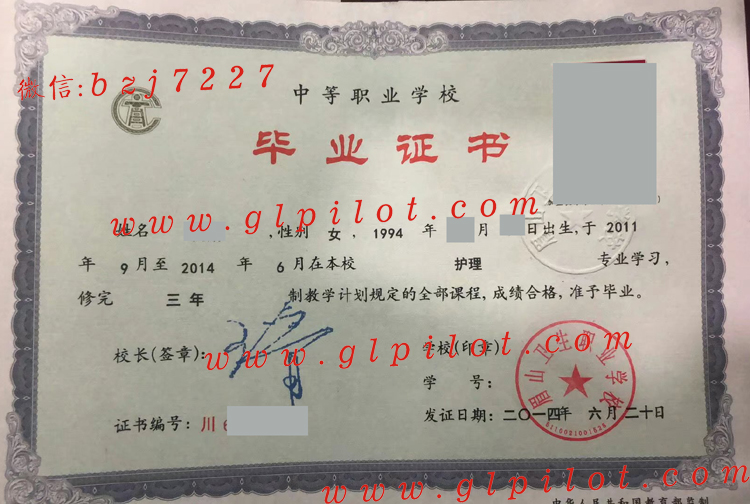 微信:bzj7227
中等职业学校
毕业证书
www.glpilot.com
姓名 ,性别 女, 1994 年 月 日出生,于 2011
年 9 月至 2014 年 6 月在本校 护理 专业学习,
修完 三年 制教学计划规定的全部课程, 成绩合格, 准予毕业。
校长(签章): 学校(印章)
www.glpilot.com
眉山卫生职业学校
学 号:
证书编号: 川
发证日期: 二〇一四年 六月二十日
www.glpilot.com
中华人民共和国教育部监制